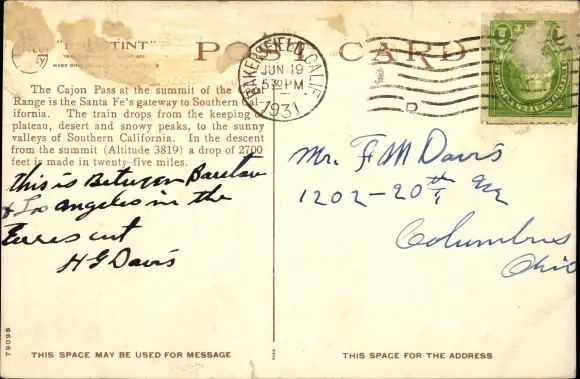 "PHOSTINT"
POST CARD
BAKERSFIELD, CALIF.
JUN 19
5 30 PM
1931
1
The Cajon Pass at the summit of the
Range is the Santa Fe's gateway to Southern Cal-
ifornia. The train drops from the keeping of
plateau, desert and snowy peaks, to the sunny
valleys of Southern California. In the descent
from the summit (Altitude 3819) a drop of 2700
feet is made in twenty-five miles.
This is Between Barstow
& Los Angeles in the
cut
H G Davis
Mr. F M Davis
1202-20th
Columbus
Ohio
79098
THIS SPACE MAY BE USED FOR MESSAGE
THIS SPACE FOR THE ADDRESS